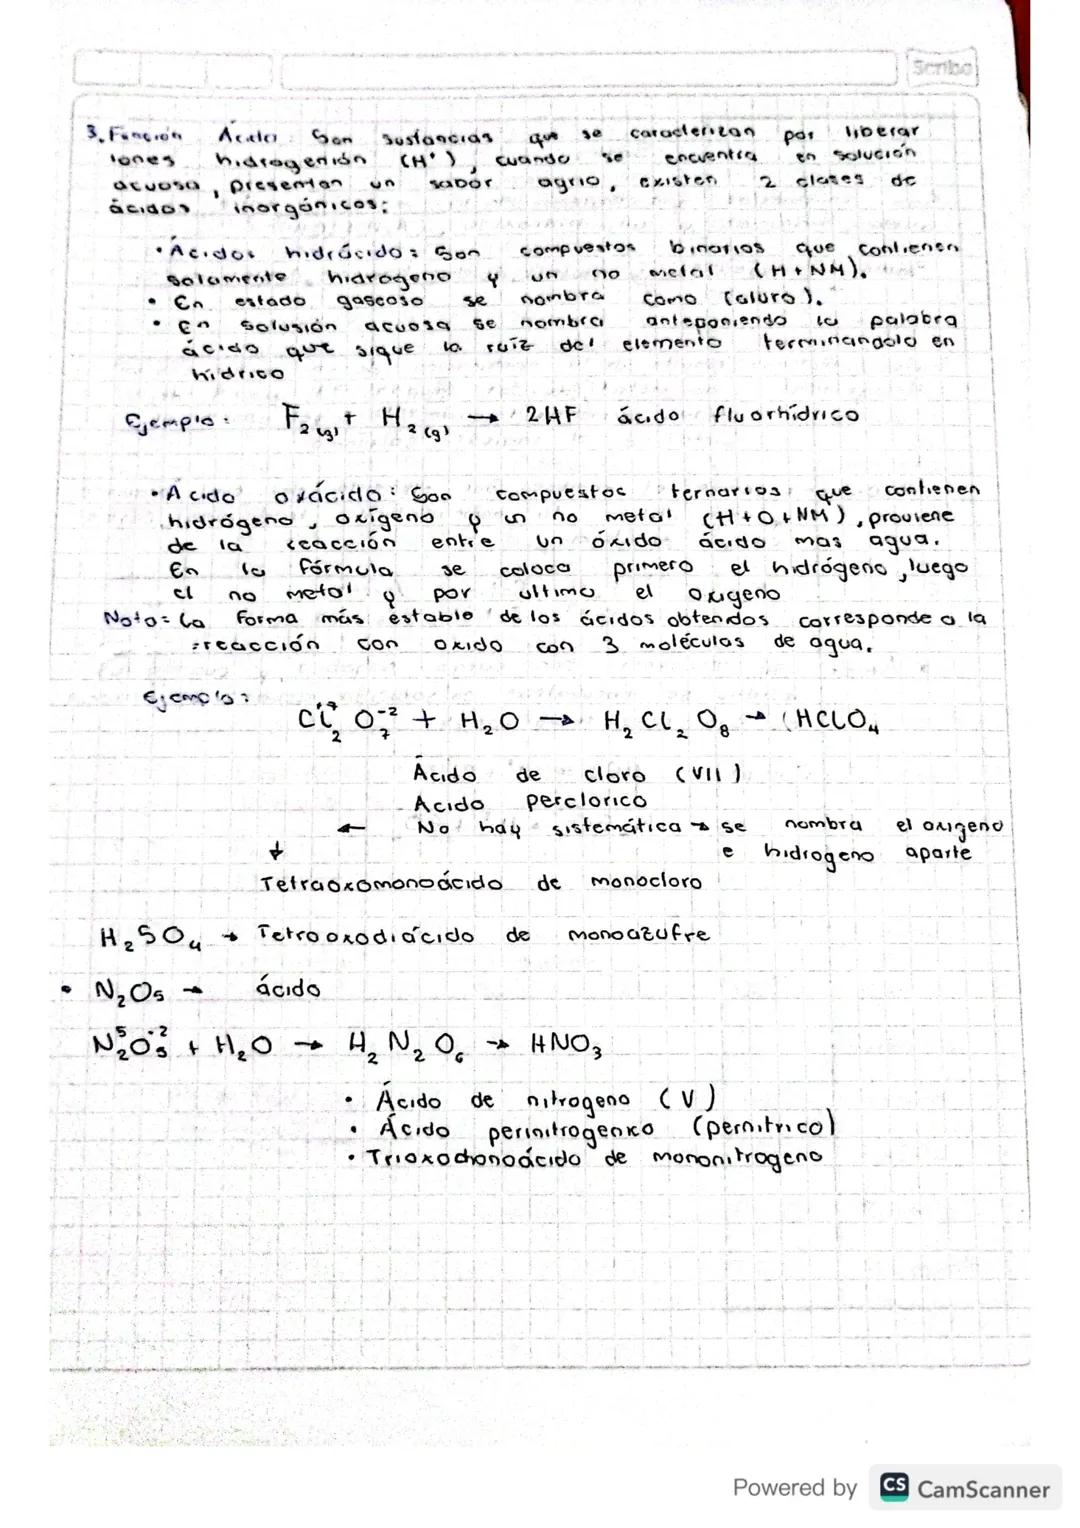 Scribe
3. Función Ácido: Son sustancias que se caracterizan por liberar
iones hidrogenión (H⁺), cuando se encuentra en solución
acuosa, presentan un sabor agrio, existen 2 clases de
ácidos inorgánicos:
• Ácidos hidrácido: Son compuestos binarios que contienen
solamente hidrógeno y un no metal (H+NM).
• En estado gaseoso se nombra como (aluro).
• En solusión acuosa se nombra anteponiendo la palabra
ácido que sigue la raíz del elemento terminandolo en
hídrico
Ejemplo: F₂(g) + H₂(g) → 2HF ácido fluorhídrico
• Acido oxácido: Son compuestos ternarios que contienen
hidrógeno, oxígeno y un no metal (H+O+NM), proviene
de la reacción entre un óxido ácido mas agua.
En la fórmula se coloca primero el hidrógeno, luego
el no metal y por ultimo el oxigeno
Nota: La forma más estable de los ácidos obtenidos corresponde a la
reacción con oxido con 3 moléculas de agua.
Ejemplo:
Cl₂⁺⁷ O₇⁻² + H₂O → H₂Cl₂O₈ → (HClO₄
Ácido de cloro (VII)
Acido perclorico
← No hay sistemática → se nombra el oxigeno
↓ e hidrogeno aparte
Tetraoxomonoácido de monocloro
H₂SO₄ → Tetraoxodiácido de monoazufre
• N₂O₅ → ácido
N₂⁵O₅⁻² + H₂O → H₂N₂O₆ → HNO₃
• Ácido de nitrogeno (V)
• Ácido perinitrogenico (pernitrico)
• de mononitrogeno
Powered by CS CamScanner